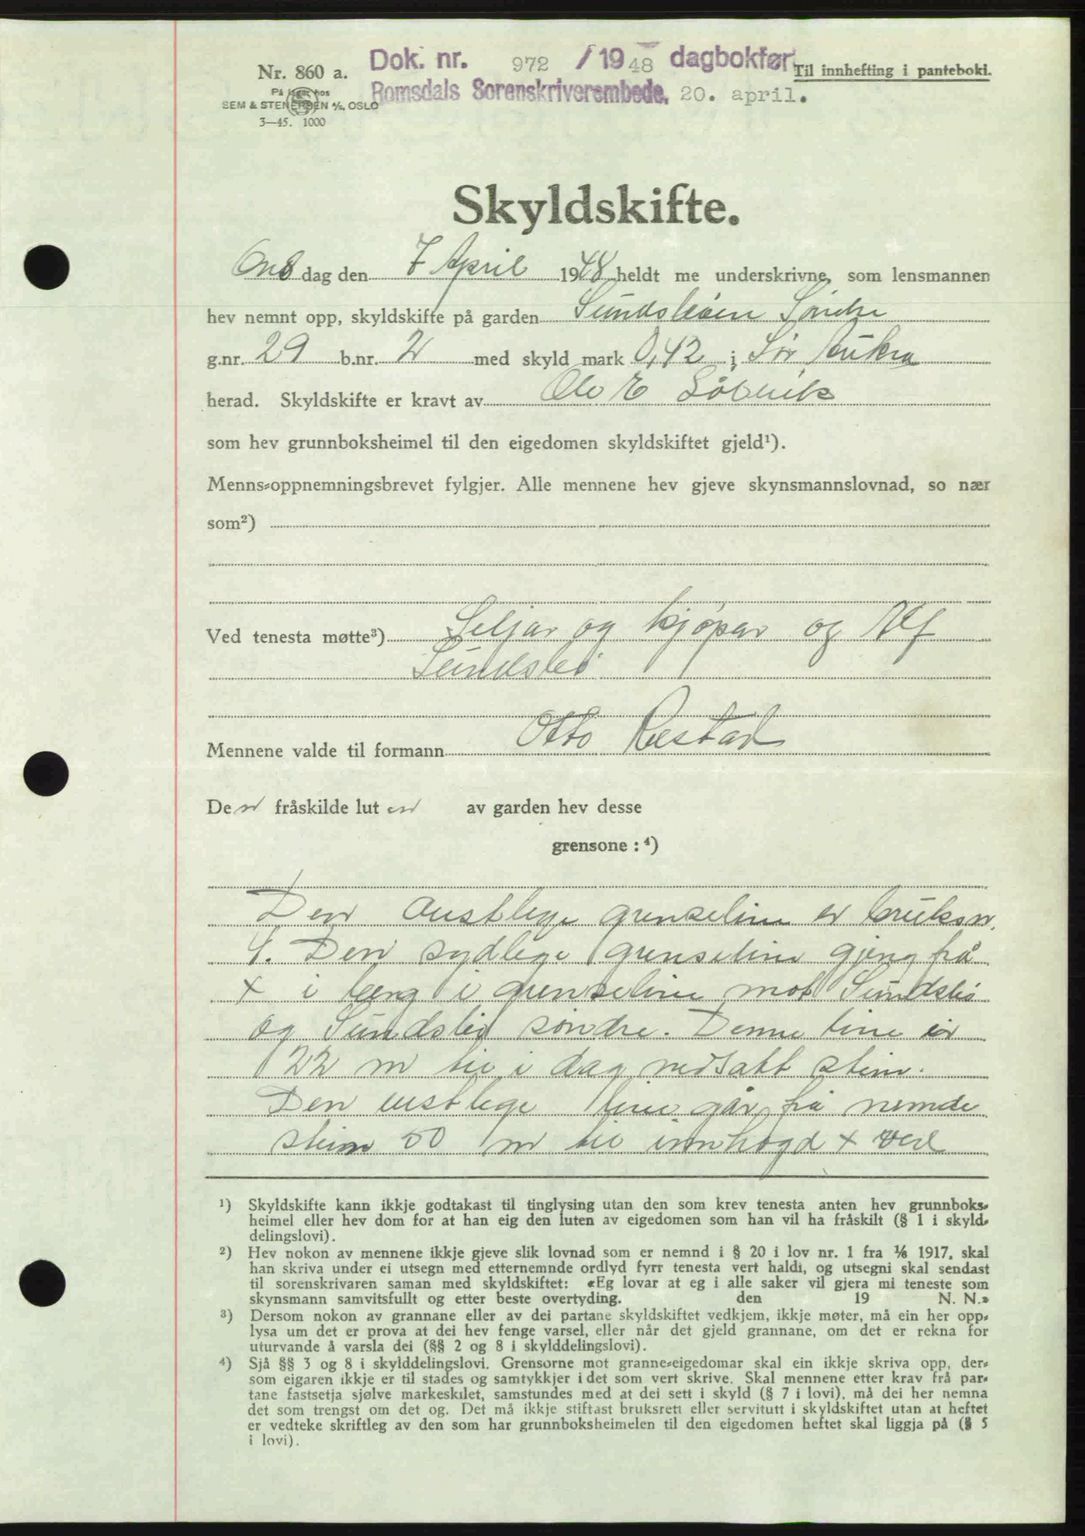 Dok. nr. 972 /1948 dagbokført
Nr. 860 a.
Til innhefting i panteboki.
Romsdals Sorenskriverembede, 20. april.
På lager hos
SEM & STENERSEN A/S, OSLO
3—45. 1000
Skyldskifte.
Onsdag den 7 April 1948 heldt me underskrivne, som lensmannen
hev nemnt opp, skyldskifte på garden Sundsleien Søndre
g.nr. 29 b.nr. 2 med skyld mark 0,42 i Sør Aukra
herad. Skyldskifte er kravt av Ole E
som hev grunnboksheimel til den eigedomen skyldskiftet gjeld¹).
Menns-oppnemningsbrevet fylgjer. Alle mennene hev gjeve skynsmannslovnad, so nær
som²)
Ved tenesta møtte³) Seljar og kjøpar og Alf
Sundsbø
Mennene valde til formann Otto Restad
Den fråskilde luten av garden hev desse
grensone : ⁴)
Den austlege grenselinе er bruksnr.
4. Den sydlege grenselinе gjeng frå
x i berg i grenselinе mot Sundsbø
og Sundsbø søndre. Denne line er
22 m til i dag nedsatt stein.
Den vestlege line går frå nemde
stein 50 m til innhogd x ved
¹) Skyldskifte kann ikkje godtakast til tinglysing utan den som krev tenesta anten hev grunnboks-
heimel eller hev dom for at han eig den luten av eigedomen som han vil ha fråskilt (§ 1 i skyld-
delingslovi).
²) Hev nokon av mennene ikkje gjeve slik lovnad som er nemnd i § 20 i lov nr. 1 fra 1/6 1917, skal
han skriva under ei utsegn med etternemnde ordlyd fyrr tenesta vert haldi, og utsegni skal sendast
til sorenskrivaren saman med skyldskiftet: «Eg lovar at eg i alle saker vil gjera mi teneste som
skynsmann samvitsfullt og etter beste overtyding. den 19 N. N.»
³) Dersom nokon av grannane eller av dei partane skyldskiftet vedkjem, ikkje møter, må ein her opp-
lysa um det er prova at dei hev fenge varsel, eller når det gjeld grannane, om det er rekna for
uturvande å varsla dei (§§ 2 og 8 i skylddelingslovi).
⁴) Sjå §§ 3 og 8 i skylddelingslovi. Grensorne mot granne-eigedomar skal ein ikkje skriva opp, der-
som eigaren ikkje er til stades og samtykkjer i det som vert skrive. Skal mennene etter krav frå par-
tane fastsetja sjølve markeskilet, samstundes med at dei sett i skyld (§ 7 i lovi), må dei her nemna
det som trengst om det og. Det må ikkje stiftast bruksrett eller servitutt i skyldskiftet utan at heftet
er vedteke skriftleg av den som har grunnboksheimelen til den eigedomen heftet skal liggja på (§ 5
i lovi).